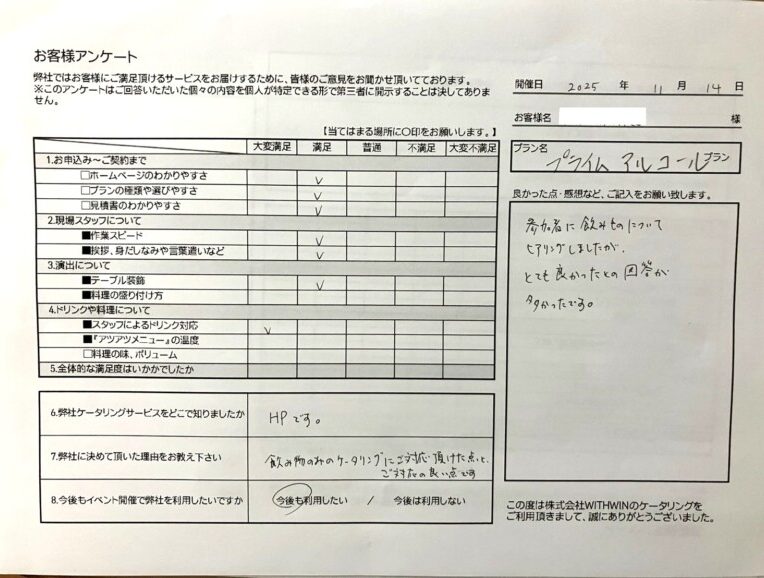 お客様アンケート
弊社ではお客様にご満足頂けるサービスをお届けするために、皆様のご意見をお聞かせ頂いております。
※このアンケートはご回答いただいた個々の内容を個人が特定できる形で第三者に開示することは決してありま
せん。
開催日 2025 年 11 月 14 日
お客様名 様
【当てはまる場所に〇印をお願いします。】
大変満足 満足 普通 不満足 大変不満足
1.お申込み～ご契約まで
□ホームページのわかりやすさ ✓
□プランの種類や選びやすさ ✓
□見積書のわかりやすさ ✓
2.現場スタッフについて
■作業スピード ✓
■挨拶、身だしなみや言葉遣いなど ✓
3.演出について
■テーブル装飾 ✓
■料理の盛り付け方
4.ドリンクや料理について
■スタッフによるドリンク対応 ✓
■『アツアツメニュー』の温度
□料理の味、ボリューム
5.全体的な満足度はいかがでしたか
6.弊社ケータリングサービスをどこで知りましたか HPです。
7.弊社に決めて頂いた理由をお教え下さい 飲み物のみのケータリングにご対応頂けた点と、
ご対応の良い点です
8.今後もイベント開催で弊社を利用したいですか 今後も利用したい / 今後は利用しない
プラン名
プライムアルコールプラン
良かった点・感想など、ご記入をお願い致します。
参加者に飲みものについて
ヒアリングしましたが、
とても良かったとの回答が
多かったです。
この度は株式会社WITHWINのケータリングを
ご利用頂きまして、誠にありがとうございました。